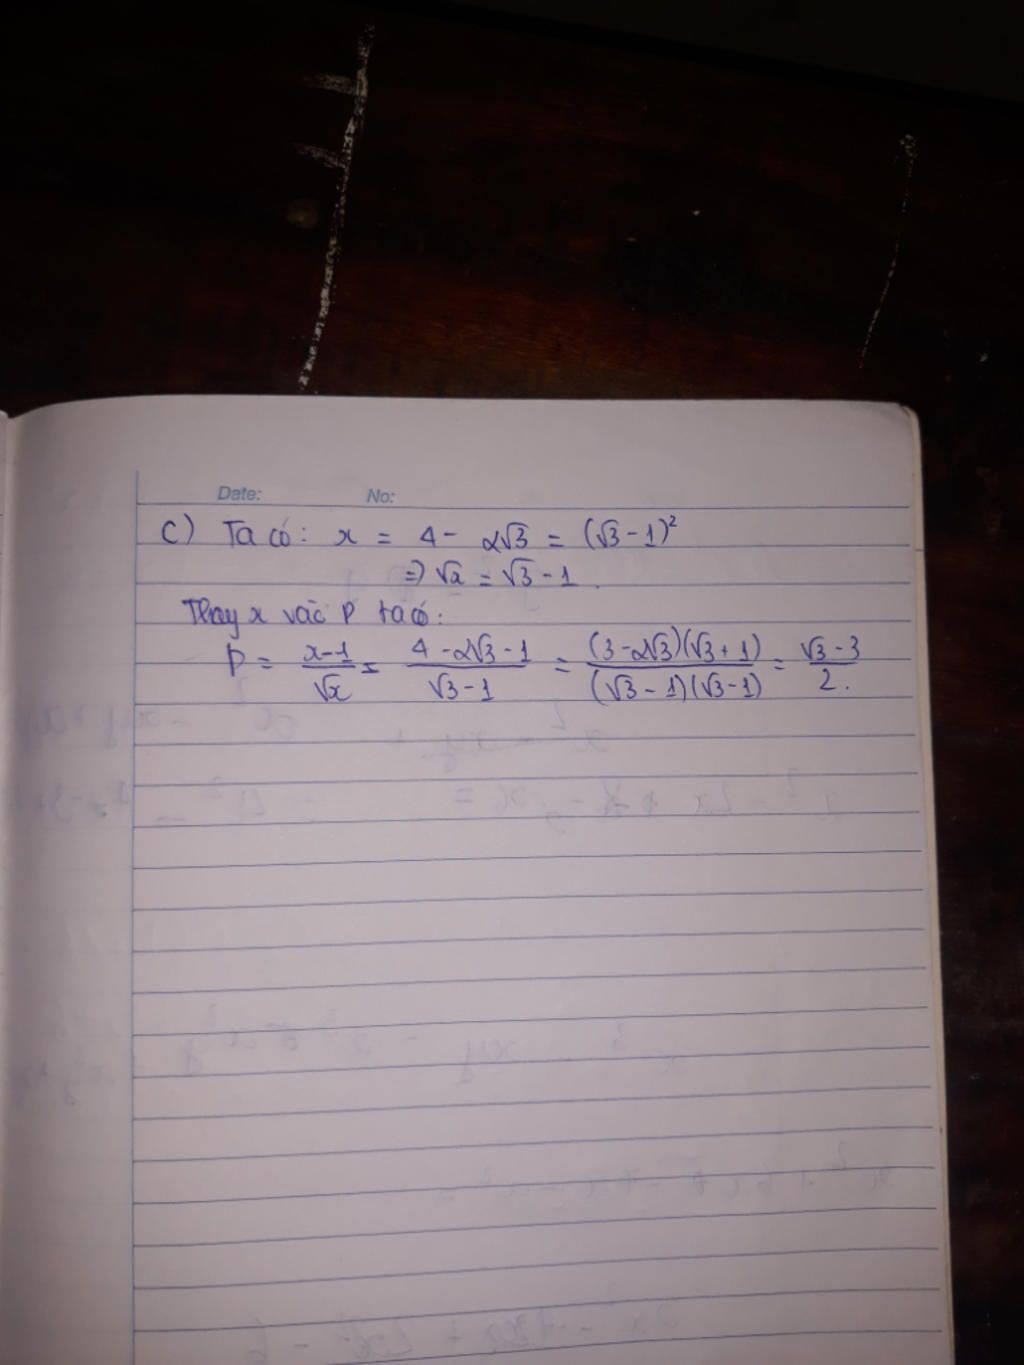 Date: No:
c) Ta có: x = 4 - 2√3 = (√3 - 1)²
=> √x = √3 - 1.
Thay x vào P ta có:
P = (x-1)/√x = (4 - 2√3 - 1)/(√3 - 1) = ((3 - 2√3)(√3 + 1))/((√3 - 1)(√3 - 1)) = (√3 - 3)/2.